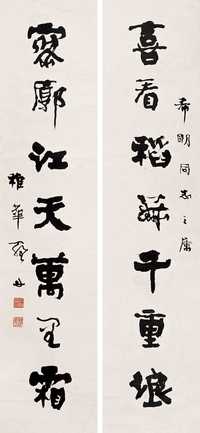 希明同志之属
喜看稻菽千重浪
寥廓江天萬里霜
稚華羅丹